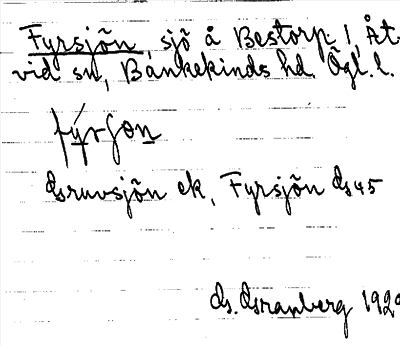 Fyrsjön, sjö å Bestorp 1, Åt-
vid sn, Bankekinds hd. Ögl. l.
fýrʃon
Gsruvsjön ek, Fyrsjön Gs45
Gs. Gsranberg 192